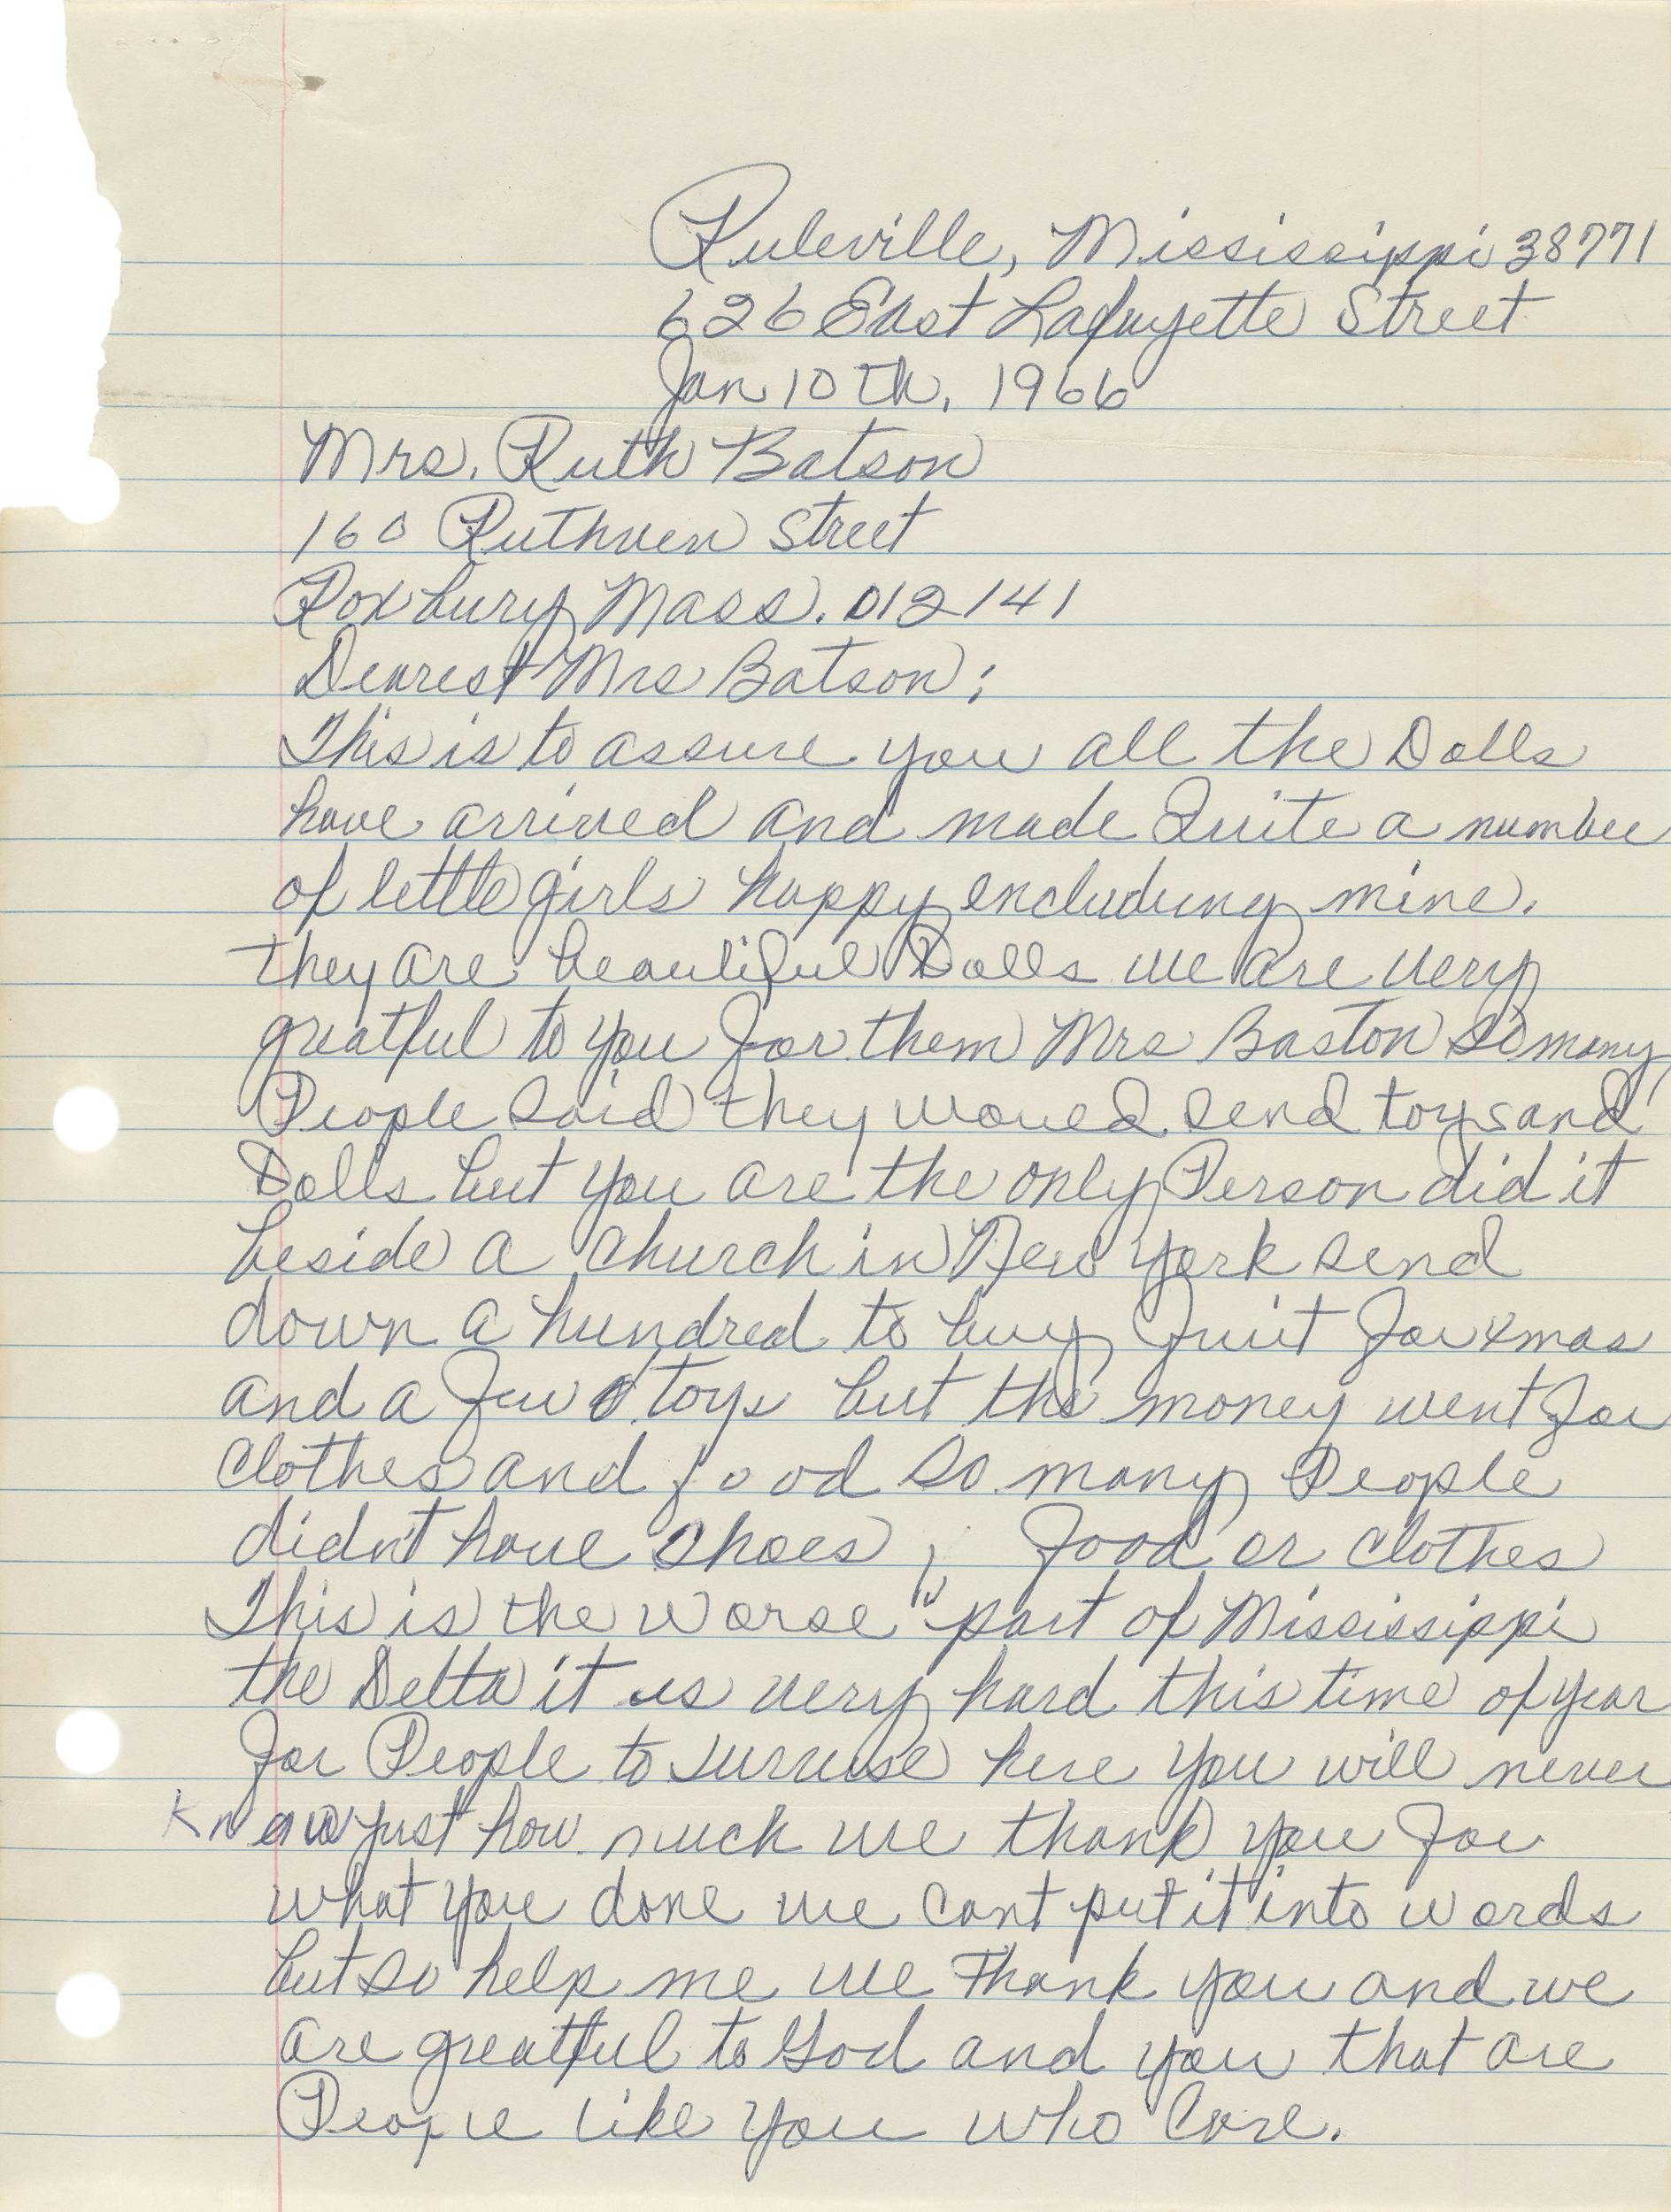 Ruleville, Mississippi 38771
626 East Lafayette Street
Jan 10th, 1966
Mrs. Ruth Batson
160 Ruthven Street
Roxbury Mass. 012141
Dearest Mrs Batson;
This is to assure you all the Dolls
have arrived and made Quite a number
of little girls happy encludung mine.
they are beautiful Dolls we are very
greatful to you for them Mrs Baston so many
People said they woued send toys and
Dolls but you are the only Person did it
beside a church in New York send
down a hundred to buy fruit for xmas
and a few toys but the money went for
clothes and food so many People
didn't have shoes, food or clothes
This is the worse part of Mississippi
the Delta it is very hard this time of year
for People to survise here you will never
know just how much we thank you for
what you done we cant put it into words
but so help me we Thank you and we
are greatful to God and you that are
People like you who Care.